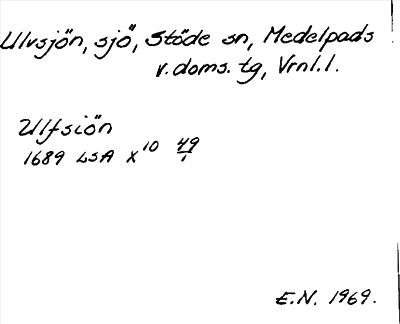 Ulvsjön, sjö, Stöde sn, Medelpads
v. doms. tg, Vrnl. l.
Ulfsiön
1689 LSA X¹⁰ 49/1
E.N. 1969.